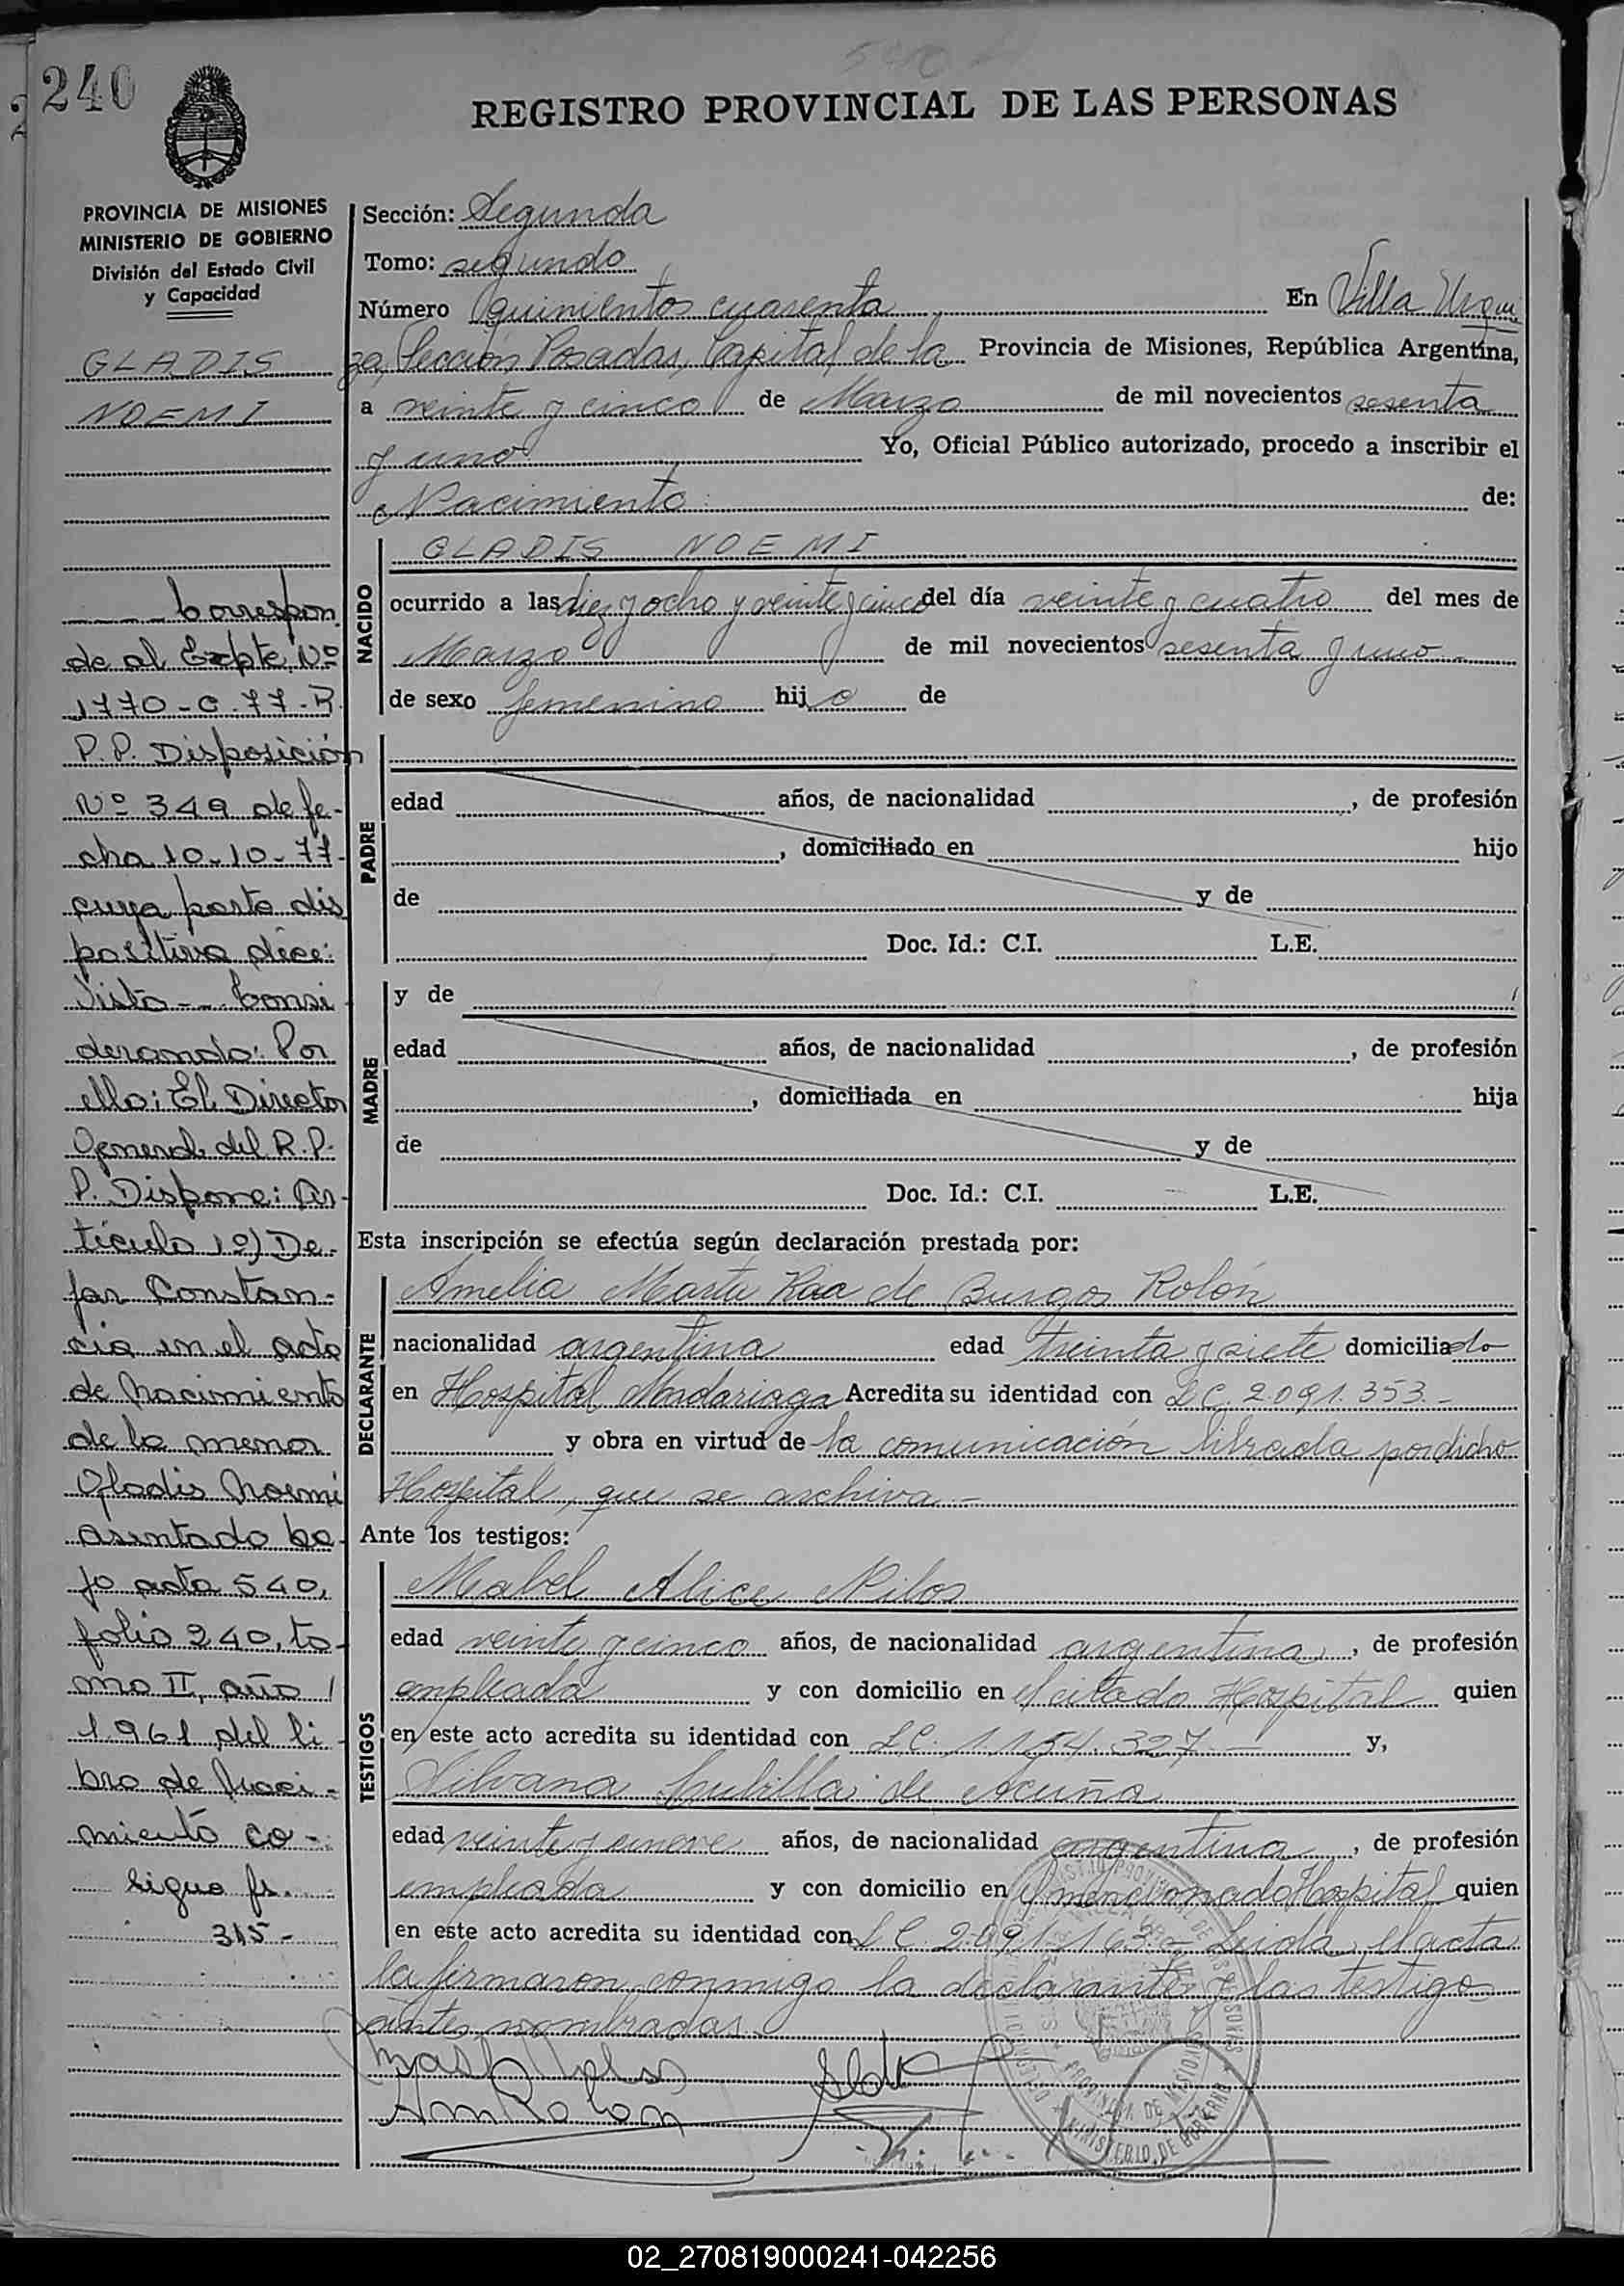 240
REGISTRO PROVINCIAL DE LAS PERSONAS
PROVINCIA DE MISIONES
MINISTERIO DE GOBIERNO
División del Estado Civil
y Capacidad
GLADIS
NOEMI
Correspon
de al Expte. Nº
1770-C-77-R.
P.P. Disposición
Nº 349 de fe-
cha 10-10-77-
cuya parte dis
positiva dice:
Visto-- Consi
derando: Por
ello: El Director
General del R.P.
P. Dispone: Ar-
tículo 1º) De-
jar Constan-
cia en el acta
de Nacimiento
de la menor
Gladis Noemi
asentado ba-
jo acta 540,
folio 240, to-
mo II, año
1.961 del li-
bro de Naci-
miento co-
Sigue fs.
315-
Sección: Segunda
Tomo: segundo
Número quinientos cuarenta En Villa Urqui
za, Sección Posadas, Capital de la Provincia de Misiones, República Argentina,
a veinte y cinco de Marzo de mil novecientos sesenta
y uno Yo, Oficial Público autorizado, procedo a inscribir el
Nacimiento de:
NACIDO
GLADIS NOEMI
ocurrido a las diez y ocho y veinte y cinco del día veinte y cuatro del mes de
Marzo de mil novecientos sesenta y uno-
de sexo femenino hijo de
PADRE
edad años, de nacionalidad , de profesión
, domiciliado en hijo
de y de
Doc. Id.: C.I. L.E.
MADRE
y de
edad años, de nacionalidad , de profesión
, domiciliada en hija
de y de
Doc. Id.: C.I. L.E.
Esta inscripción se efectúa según declaración prestada por:
DECLARANTE
Amelia Marta Raa de Burgos Rolón
nacionalidad argentina edad treinta y siete domiciliado
en Hospital Madariaga Acredita su identidad con LC. 2.091.353.-
y obra en virtud de la comunicación librada por dicho
Hospital, que se archiva.-
Ante los testigos:
TESTIGOS
Mabel Alice
edad veinte y cinco años, de nacionalidad argentina , de profesión
empleada y con domicilio en el citado Hospital quien
en este acto acredita su identidad con LC. 1.154.327- y,
Silvana Cubilla de Acuña
edad veinte y nueve años, de nacionalidad argentina , de profesión
empleada y con domicilio en el mencionado Hospital quien
en este acto acredita su identidad con LC 2.091.163.- Leida el acta
la firmaron conmigo la declarante y las testigos
antes nombradas.
AmRolon
PROVINCIA DE MISIONES
MINISTERIO DE GOBIERNO
02_270819000241-042256